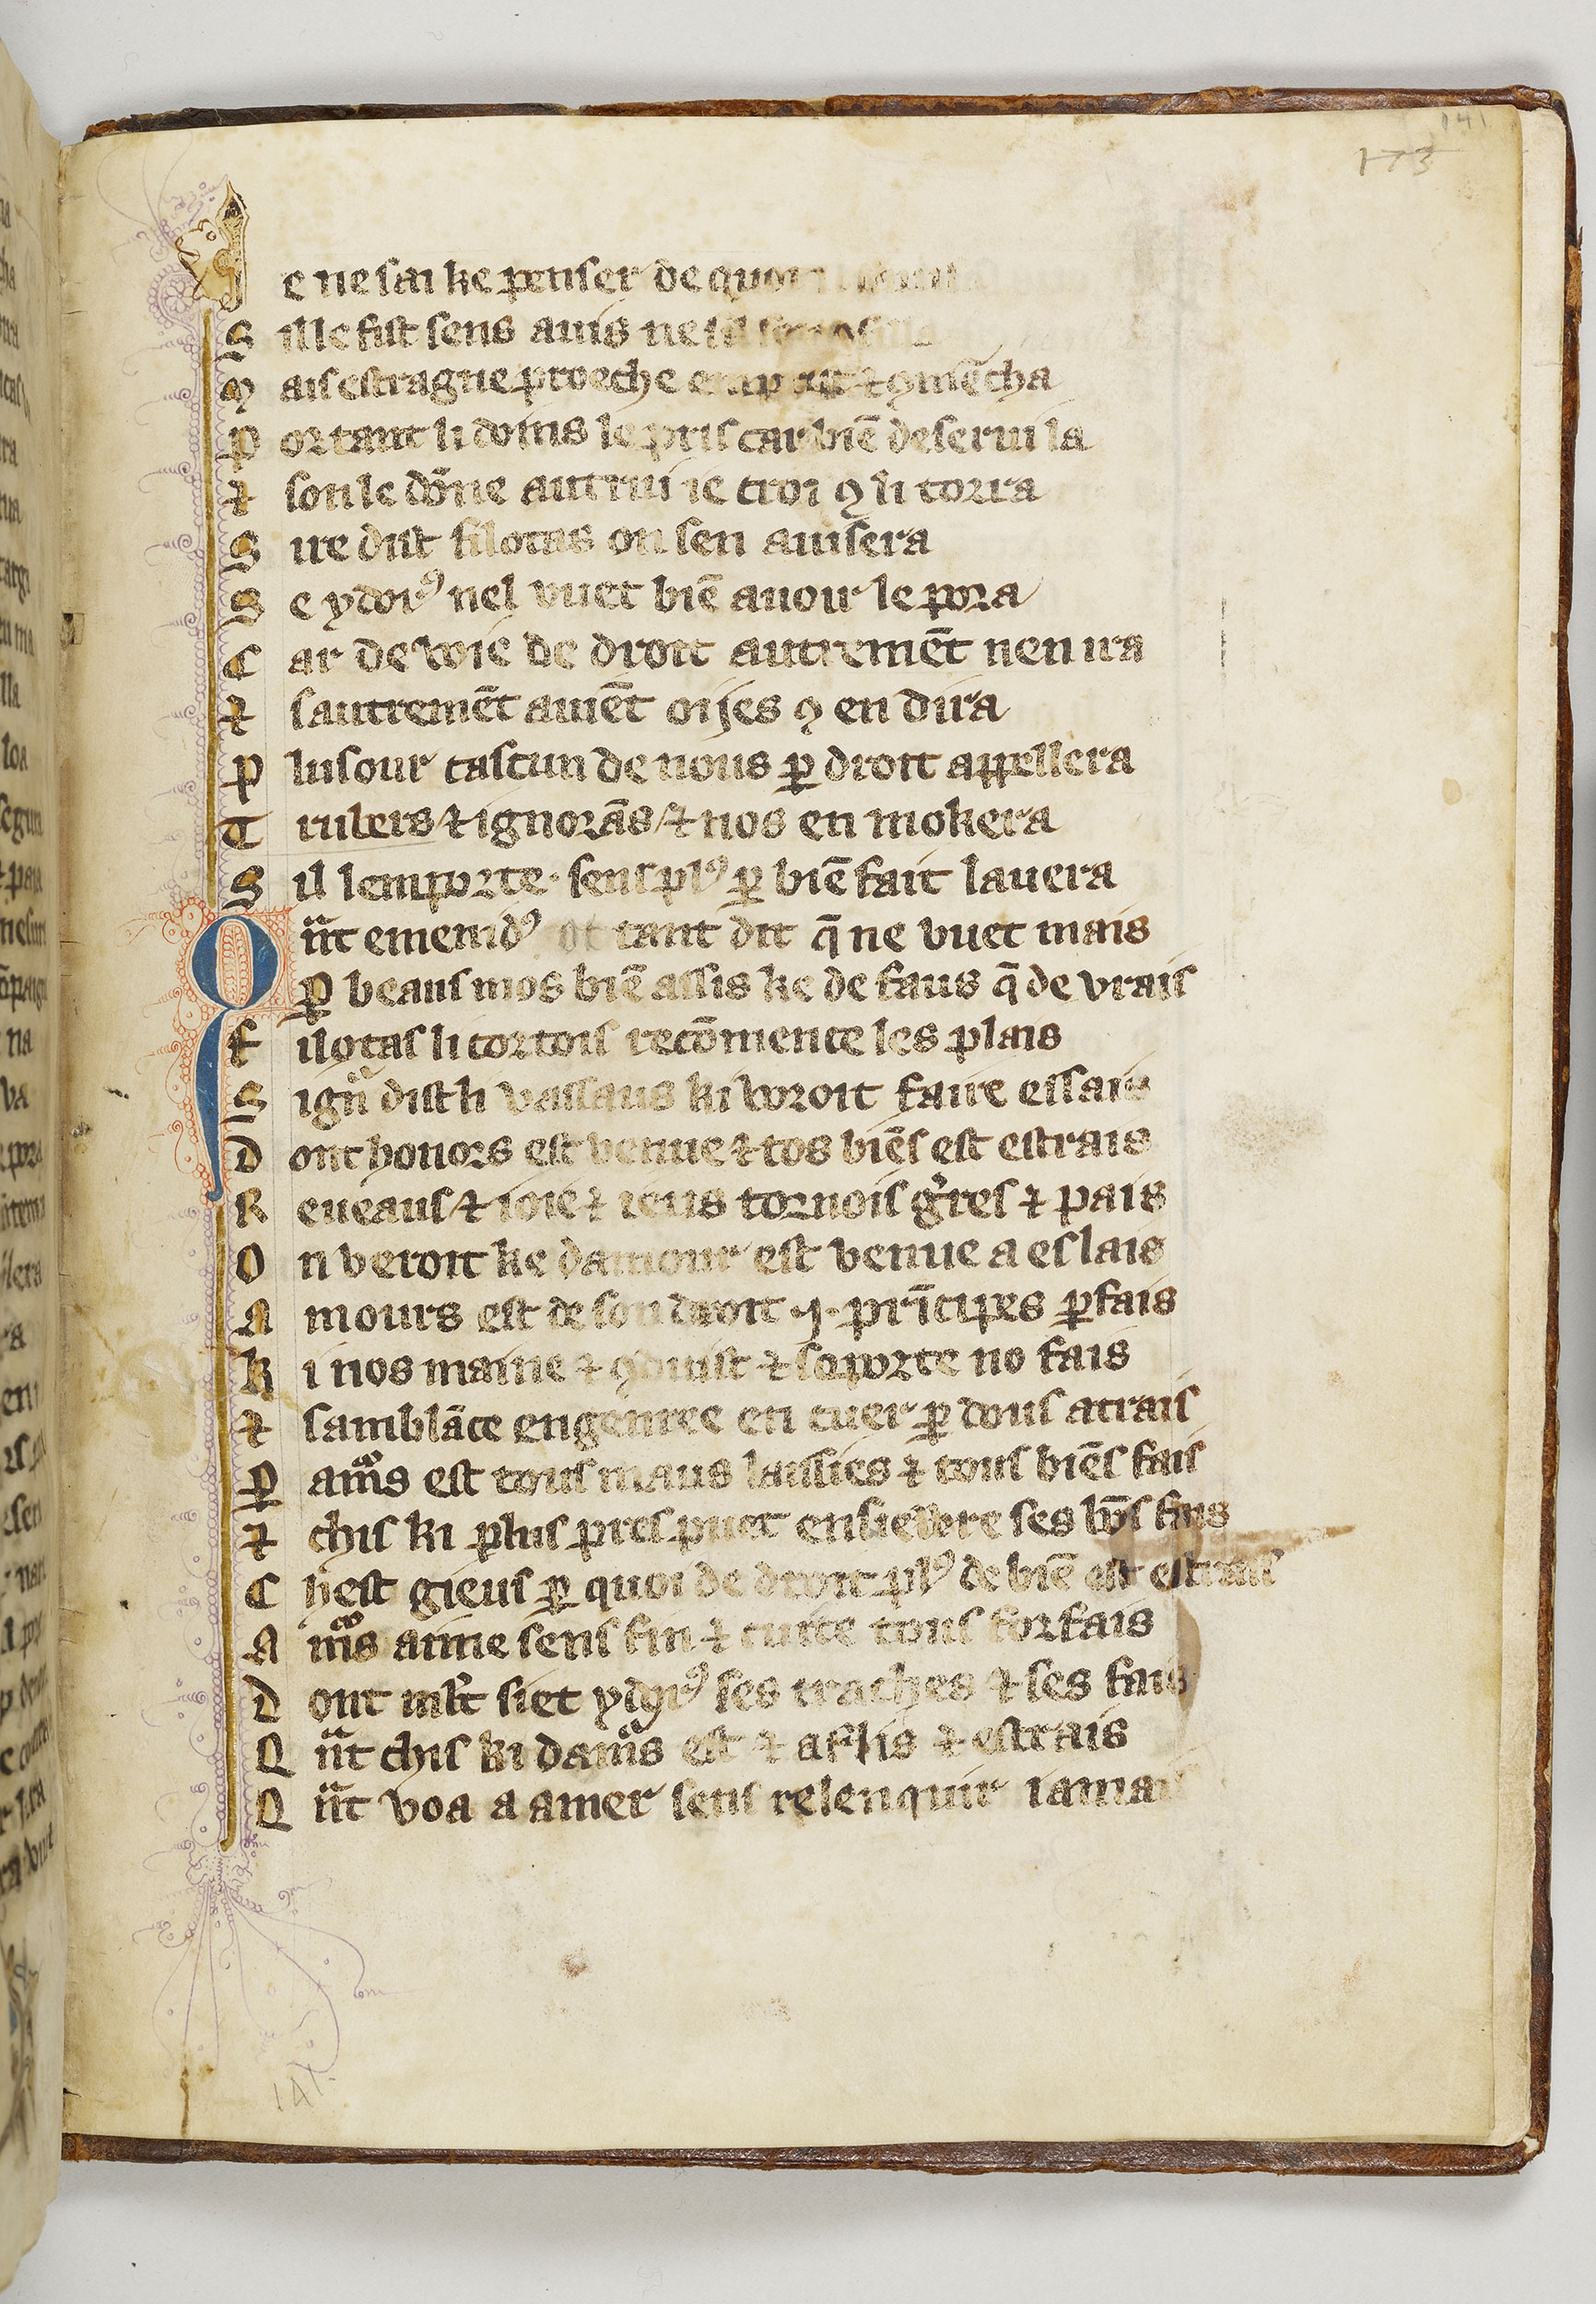 141
173
Je ne sai ke penser de quoi
S ille fist sens auis ne
M ais estragne proeche emprist ⁊ ꝯmẽcha
P or tant li doins le pris car biẽ deserui la
⁊ son le dõne autrui ie croi ꝯ li torra
S ire dist filotas on sen auisera
S e ydorꝰ nel vuet biẽ auoir le pora
C ar de voie de droit autremẽt nen ira
⁊ sautremẽt auiẽt oijes ꝯ en dira
P lusour cascun de nous ꝑ droit appellera
T rubers ⁊ ignorãs ⁊ nos en mokera
S il lemporte sens plꝰ ꝑ biẽ fait lauera
Qñt emenidꝰ ot tant dit q̃ ne vuet mais
ꝑ beaus mos biẽ assis ke de faus q̃ de vrais
F ilotas li cortois recõmence les plais
S ign̄ dist li vassaus ki voroit faire essais
D ont honors est venue ⁊ tos biẽs est estrais
R eueaus ⁊ ioie ⁊ ieus tornois gͥres ⁊ pais
O n veroit ke damour est venue a eslais
A mours est de son droit ·j· prĩcipes ꝑfais
K i nos maine ⁊ ꝯduist ⁊ soporte no fais
⁊ samblãce engenree en cuer ꝑ dous atrais
ꝑ amͬs est tous maus laissies ⁊ tous biẽs fais
⁊ chis ki plus pres puet ensieuere ses
C hest gieus ꝑ quoi de droit plꝰ de biẽ est estrais
A mͬs aime sens fin ⁊ cuite tous forfais
D ont mlt̃ siet ydorꝰ ses traches ⁊ ses fais
Q ñt chis ki damͬs est ⁊ aflis ⁊ estrais
Q ñt voa a amer sens relenquir iamais
141.